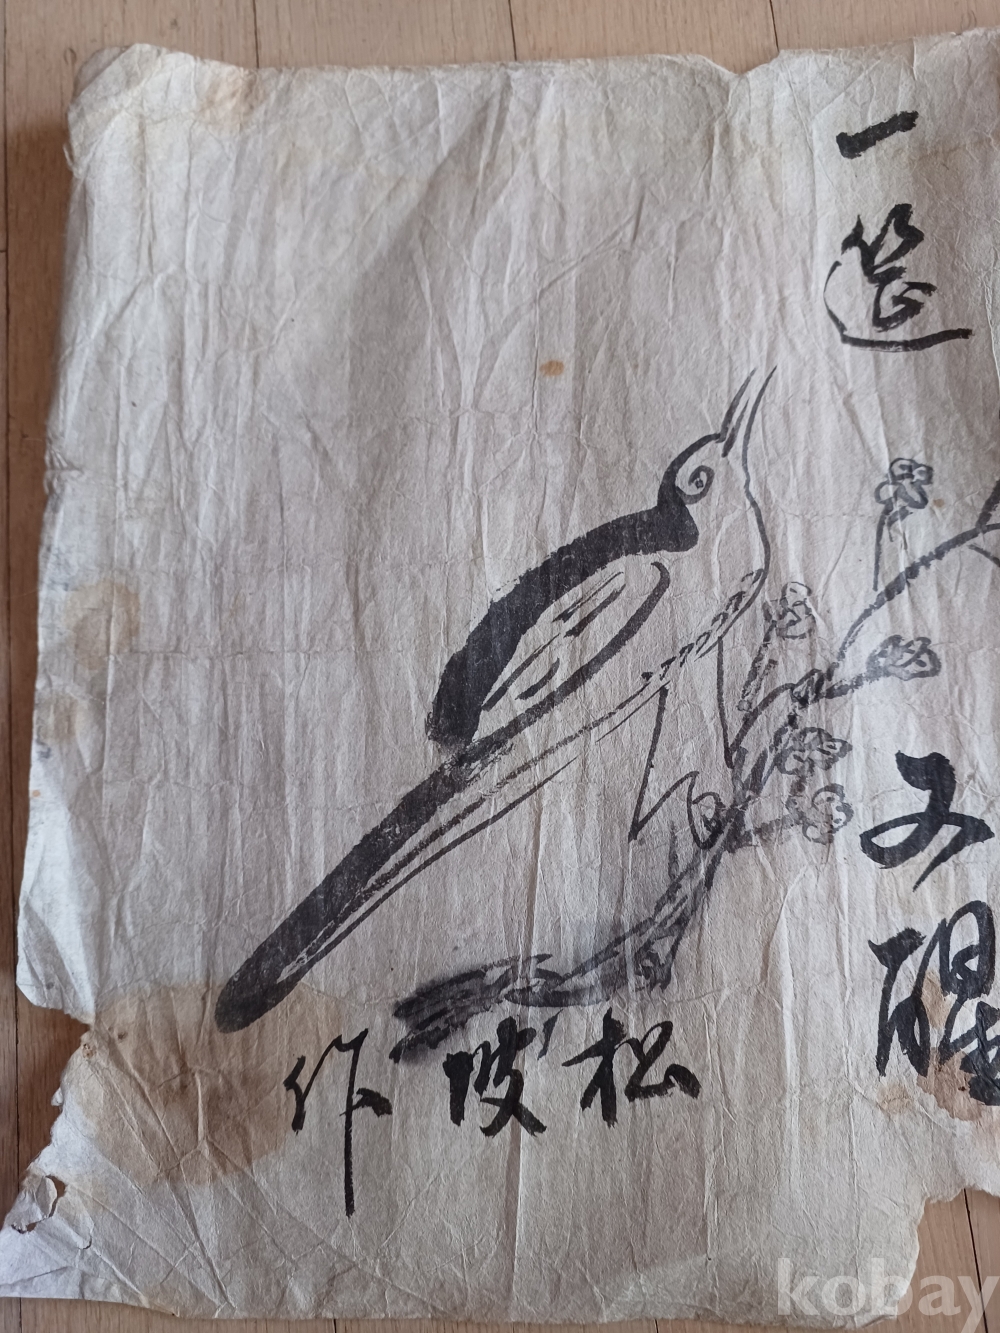 一
又醒
松坡作
kobay